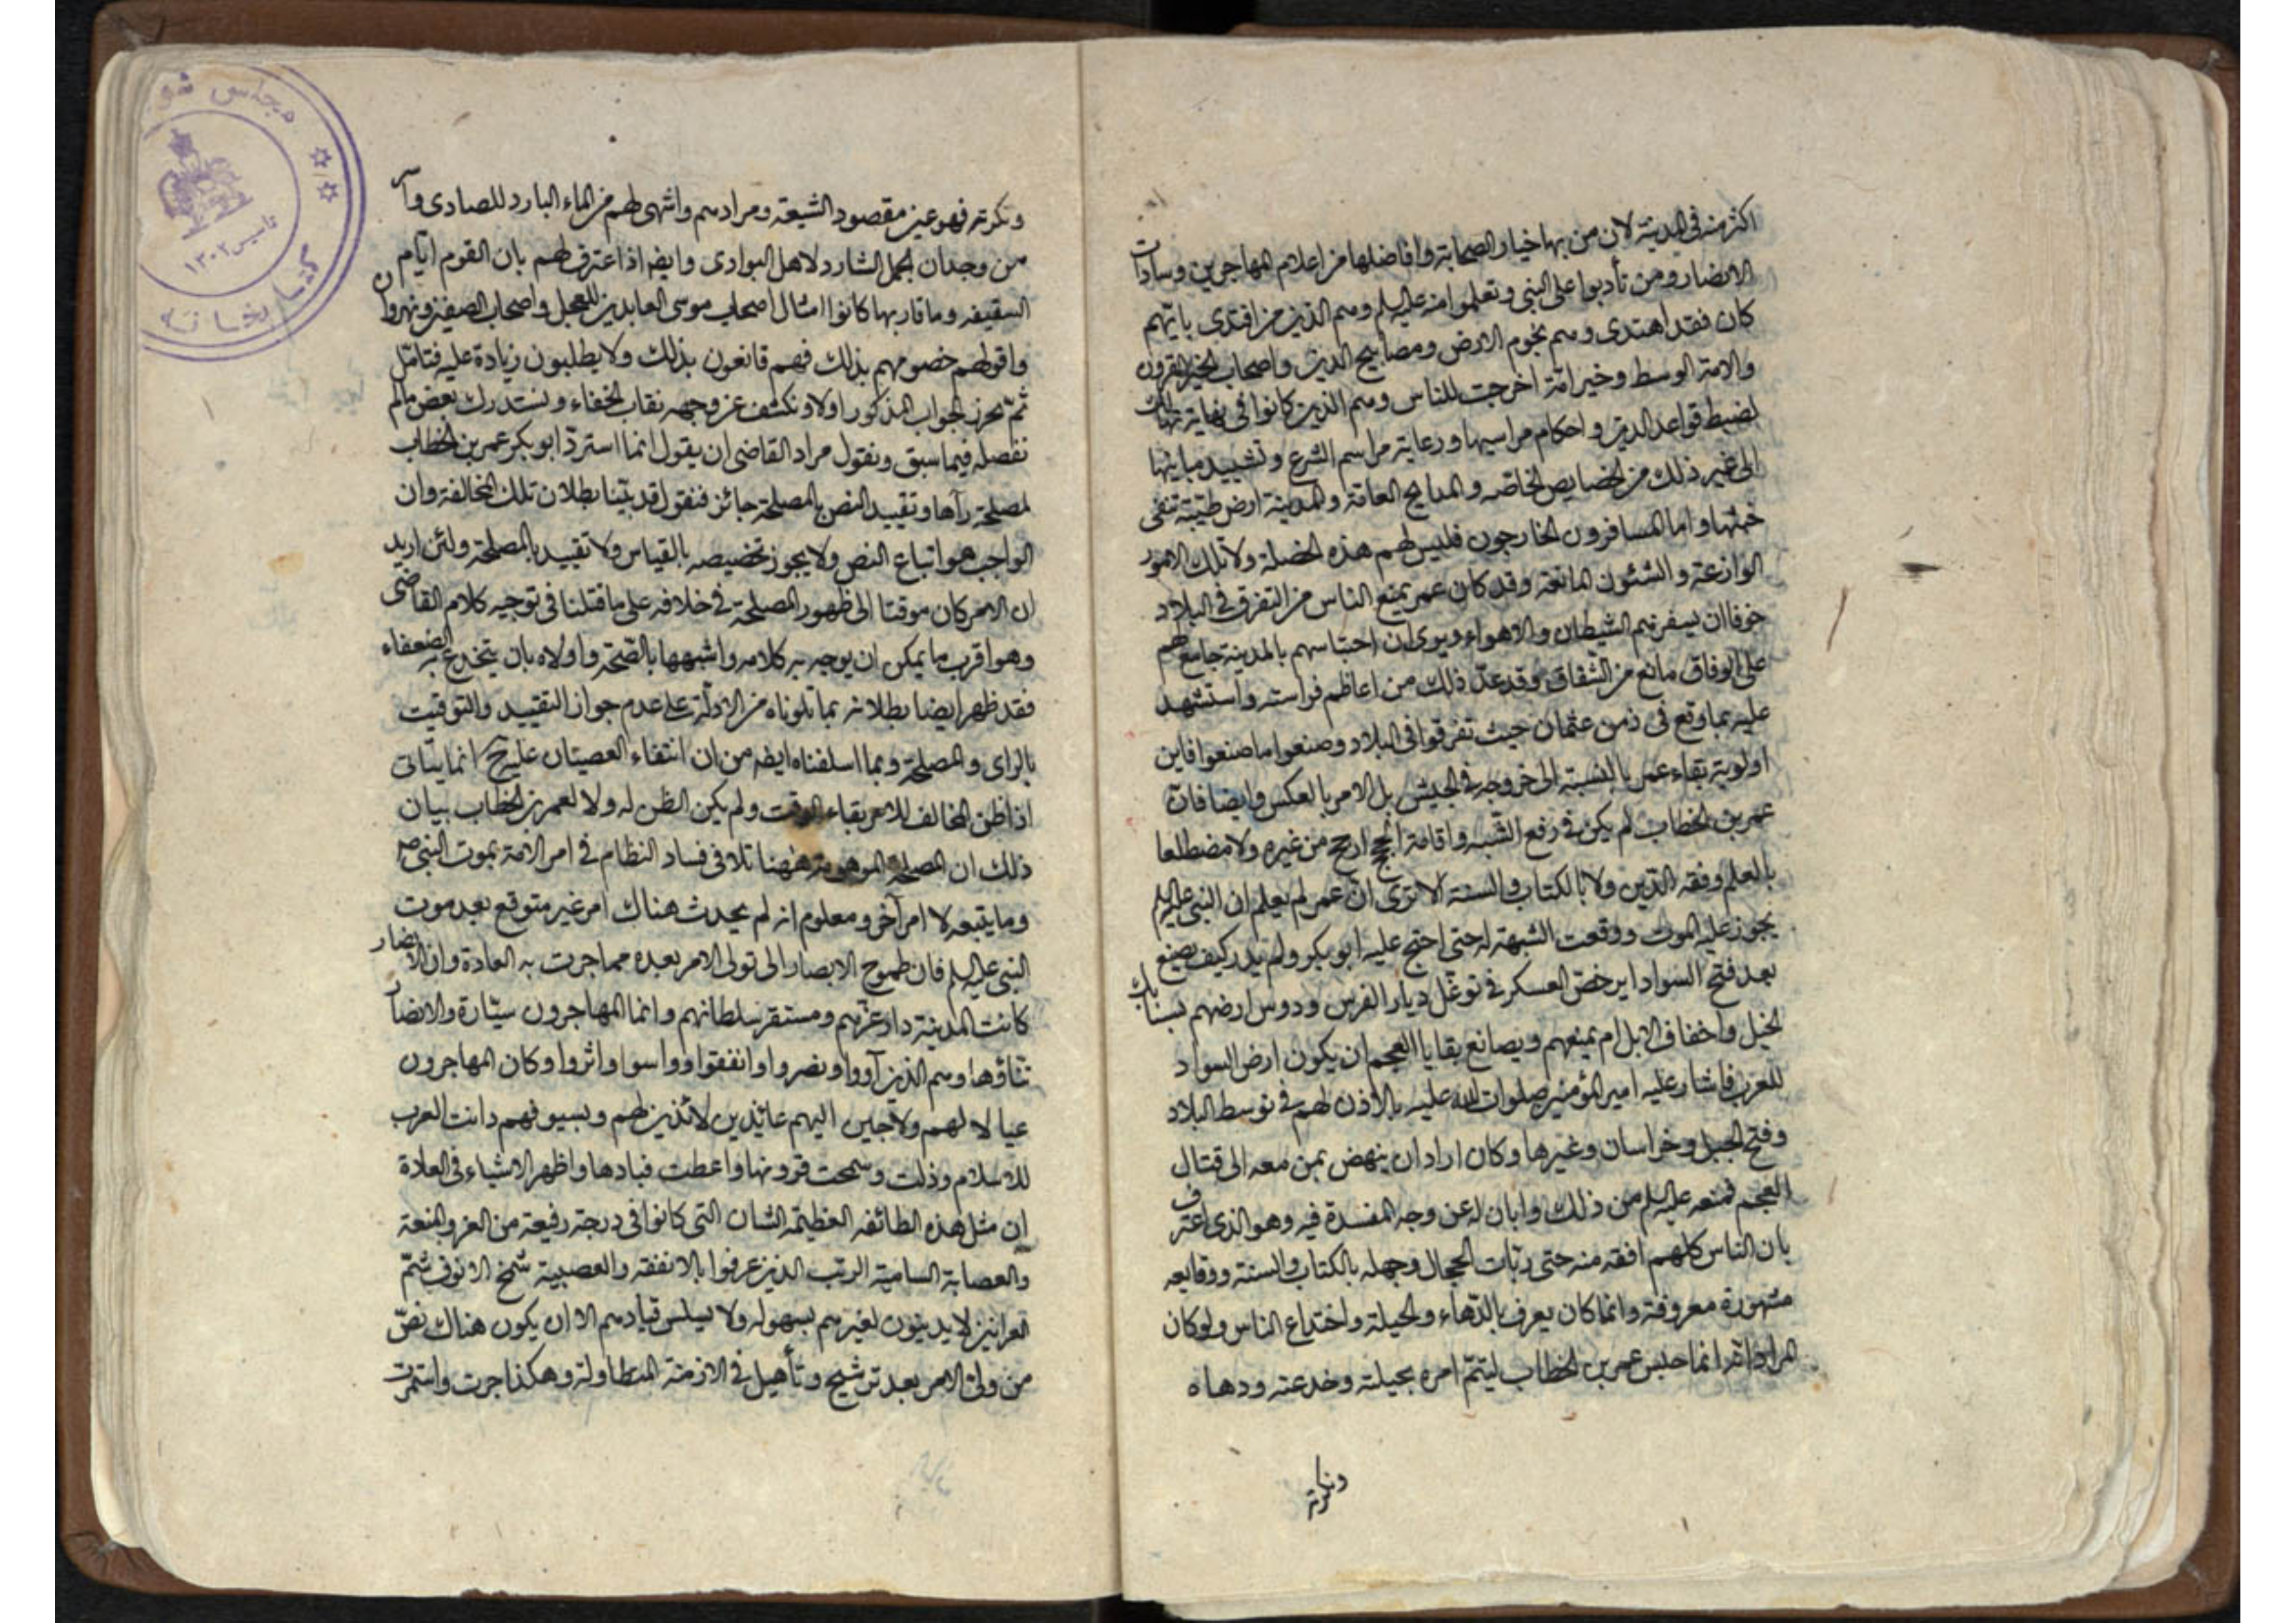 اكثر منه في المدينة لان من بها خيار الصحابة وافاضلها من اعلام المهاجرين وسادات
الانصار ومن تأدبوا على النبي وتعلموا منه عليه السلم وهم الذين من اقتدى بايهم
كان فقد اهتدى وهم نجوم الارض ومصابيح الدين واصحاب الخير القرون
والامة الوسط وخير امة اخرجت للناس وهم الذين كانوا في نهاية
لضبط قواعد الدين واحكام مراسيها ورعاية مراسم الشرع وتشييد مبانيها
الى غير ذلك من الخصايص الخاصه والمدايح العامة والمدينة ارض طيبة تنفى
خبثها واما المسافرون الخارجون فليس لهم هذه الخصلة ولا تلك الامور
الوازعة والشئون المانعة وقد كان عمر يمنع الناس من التفرق في البلاد
خوفا ان يستفزهم الشيطان والاهواء ويرى ان احتباسهم بالمدينة جامع لهم
على الوفاق مانع من الشقاق وقد عدّ ذلك من اعاظم فراسته واستشهد
عليه بما وقع في زمن عثمان حيث تفرقوا في البلاد وصنعوا ما صنعوا فاين
اولوية بقاء عمر بالنسبة الى خروجه في الجيش بل الامر بالعكس وايضا فانّ
عمر بن الخطاب لم يكن في رفع الشبه واقامة الحجج ارجح من غيره ولا مضطلعا
بالعلم وفقه الدين ولا بالكتاب والسنة الا ترى انّ عمر لم يعلم ان النبي عليه السلم
يجوز عليه الموت ووقعت الشبهة له حتى احتج عليه ابو بكر ولم يدر كيف يصنع
بعد فتح السواد ايرخص العسكر في توغّل ديار الفرس ودوس ارضهم بسنابك
الخيل واخفاف الابل ام يمنعهم ويصانع بقايا العجم ان يكون ارض السواد
للعرب فاشار عليه امير المؤمنين صلوات الله عليه بالاذن لهم في توسط البلاد
وفتح الجبل وخراسان وغيرها وكان اراد ان ينهض بمن معه الى قتال
العجم فمنعه عليه السلم من ذلك وابان له عن وجه المفسدة فيه وهو الذي اعترف
بان الناس كلهم افقه منه حتى ربّات الحجال وجهله بالكتاب والسنة ووقايعه
مشهورة معروفة وانما كان يعرف بالدّهاء والحيلة واختداع الناس ولو كان
المراد انه انما حبس عمر بن الخطاب ليتمّ امره بحيلته وخدعته ودهاه
ونكرته
ونكرته فهو عين مقصود الشيعة ومرادهم واشهى لهم من الماء البارد للصادى وآسر
من وجدان الجمل الشارد لاهل البوادى وايضا اذا اعترف لهم بان القوم ايّام
السقيفه وما قاربها كانوا امثال اصحاب موسى العابدين للعجل واصحاب الصفين ونهروان
واقر لهم خصومهم بذلك فهم قانعون بذلك ولا يطلبون زيادة عليه فتامّل
ثمّ نحرز الجواب المذكور اولا ونكشف عن وجهه نقاب الخفاء ونستدرك بعض ما لم
نفصله فيما سبق ونقول مراد القاضى ان يقول انما استردّ ابو بكر عمر بن الخطاب
لمصلحة رآها وتقييد النص بالمصلحة جائز فنقول قد بيّنا بطلان تلك المخالفة وان
الواجب هو اتباع النص ولا يجوز تخصيصه بالقياس ولا تقييد بالمصلحة ولئن اريد
ان الامر كان موقتا الى ظهور المصلحة في خلافه على ما قتلنا في توجيه كلام القاضى
وهو اقرب ما يمكن ان يوجه به كلامه واشبهها بالصّحة واولاه بان ينخدع به الضعفاء
فقد ظهر ايضا بطلانه بما تلوناه من الادلّة على عدم جواز التقييد والتوقيت
بالراى والمصلحة وبما اسلفناه ايضا من ان انتفاء العصيان عليه ح انما يتأتى
اذا ظن المخالف للامر بقاء الوقت ولم يكن الظن له ولا لعمر بن الخطاب بيان
ذلك ان المصلحة الموهومة ههنا تلافى فساد النظام في امر الامة بموت النبي ص
وما يتبعه لا امر آخر ومعلوم انه لم يحدث هناك امر غير متوقع بعد موت
النبي عليه السلم فان طموح الابصار الى تولى الامر بعده مما جرت به العادة وان الانصار
كانت المدينة دار عزّهم ومستقر سلطانهم وانما المهاجرون سيّارة والانصار
تنّاؤها وهم الذين آووا ونصروا وانفقوا وواسوا واثروا وكان المهاجرون
عيالا لهم ولاجين اليهم عائذين لائذين لهم وبسيوفهم دانت العرب
للاسلام وذلت وسمحت قرونها واعطت قيادها واظهر الاشياء في العادة
ان مثل هذه الطائفه العظيمة الشان التى كانوا في درجة رفيعة من العز والمنعة
والعصابة السامية الرتب الذين عرفوا بالانفة والعصبية شمخ الانوف شمّ
العرانين لا يدينون لغيرهم بسهوله ولا يسلس قيادهم الا ان يكون هناك نصّ
من ولىّ الامر بعد ترشيح وتأهيل في الازمنة المتطاولة وهكذا جرت واستمرت
مجلس شو
كتابخانه
تاسيس ١٣٠٢